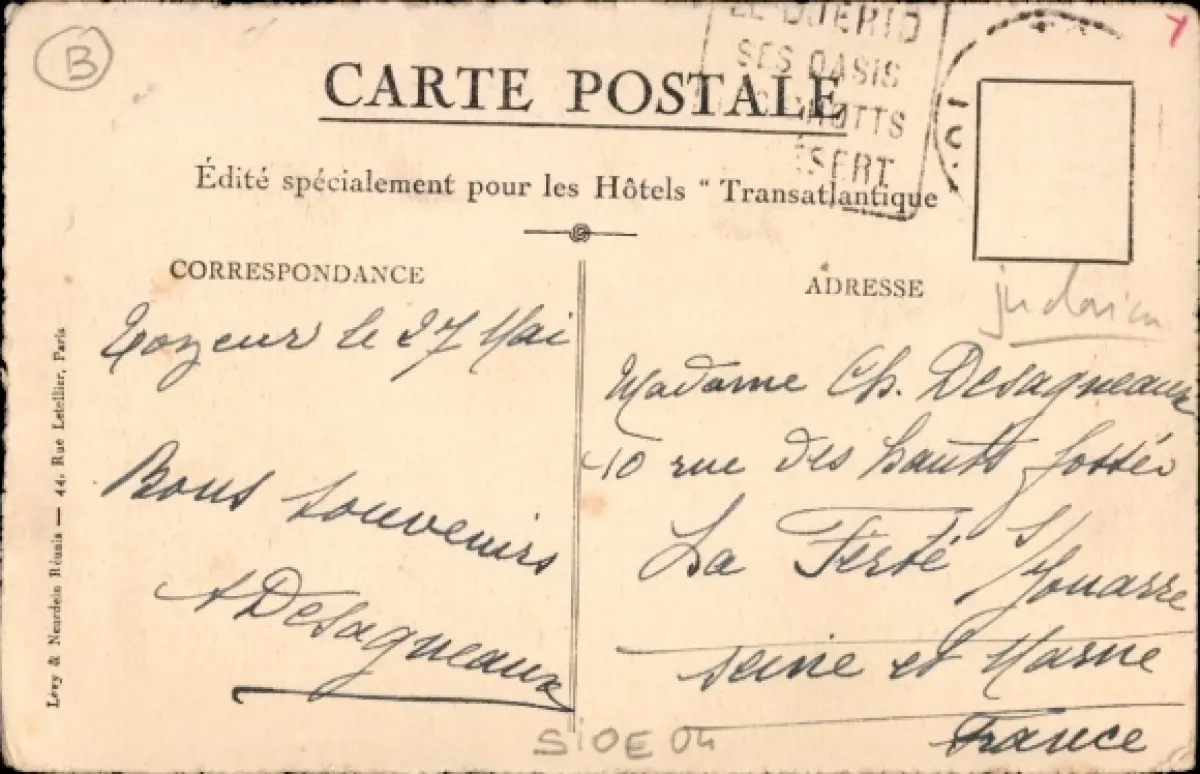 B
LE DJERID
SES OASIS
CHOTTS
DÉSERT
CARTE POSTALE
Édité spécialement pour les Hôtels " Transatlantique
CORRESPONDANCE
ADRESSE
judaica
Tozeur le 27 Mai
Bons souvenirs
A Desagneaux
Madame Ch. Desagneaux
10 rue des hauts fossés
La Ferté s/
Jouarre
Seine et Marne
France
Lévy & Neurdein Réunis — 44, Rue Letellier, Paris
SIOE 04